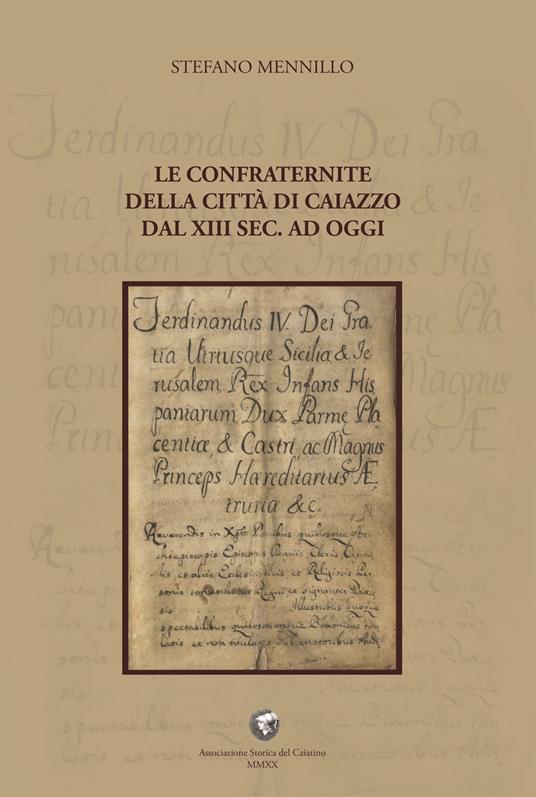 STEFANO MENNILLO
LE CONFRATERNITE
DELLA CITTÀ DI CAIAZZO
DAL XIII SEC. AD OGGI
Ferdinandus IV. Dei Gra
tia Utriusque Siciliæ & Je
rusalem Rex Infans His
paniarum Dux Parmę Pla
centiæ, & Castri, ac Magnus
Princeps Hæreditarius Æ
truriæ &c.
Reverendis in Xpto Patribus quibusque Ar
chiepiscopis Episcopis Vicariis
et aliis Ecclesiasticis et Religiosis Per
sonis Regni et signanter
sis Illustribus quoque
spectabilibus quibuscumque Baronibus titu
latis et non titulatis Gubernatoribus Aud
Associazione Storica del Caiatino
MMXX